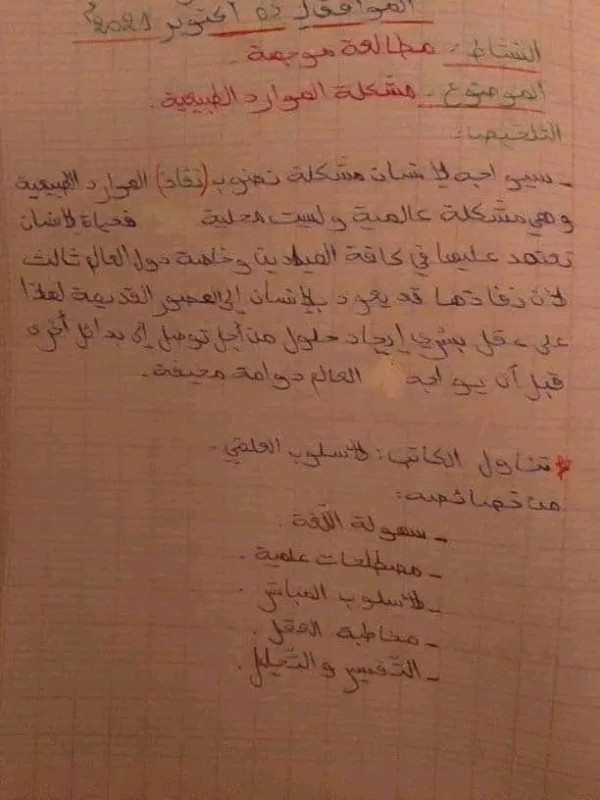 الموافق لـ 05 أكتوبر 2021م
النشاط: مطالعة موجهة.
الموضوع: مشكلة الموارد الطبيعية.
التلخيص:
- سيواجه لانسان مشكلة نضوب (نفاذ) الموارد الطبيعية
وهي مشكلة عالمية وليست محلية فحياة لانسان
تعتمد عليها في كافة الميادين وخاصة دول العالم ثالث
لأن نفاذها قد يعود بلإنسان إلى العصور القديمة لهذا
على عقل بشري إيجاد حلول من أجل توصل إلى بدائل أخرى
قبل أن يواجه العالم دوامة مخيفة.
* تناول الكاتب: لاسلوب العلمي.
من خصائصه:
- سهولة اللغة.
- مصطلحات علمية.
- لاسلوب المباشر.
- مخاطبة العقل.
- التفسير والتحليل.